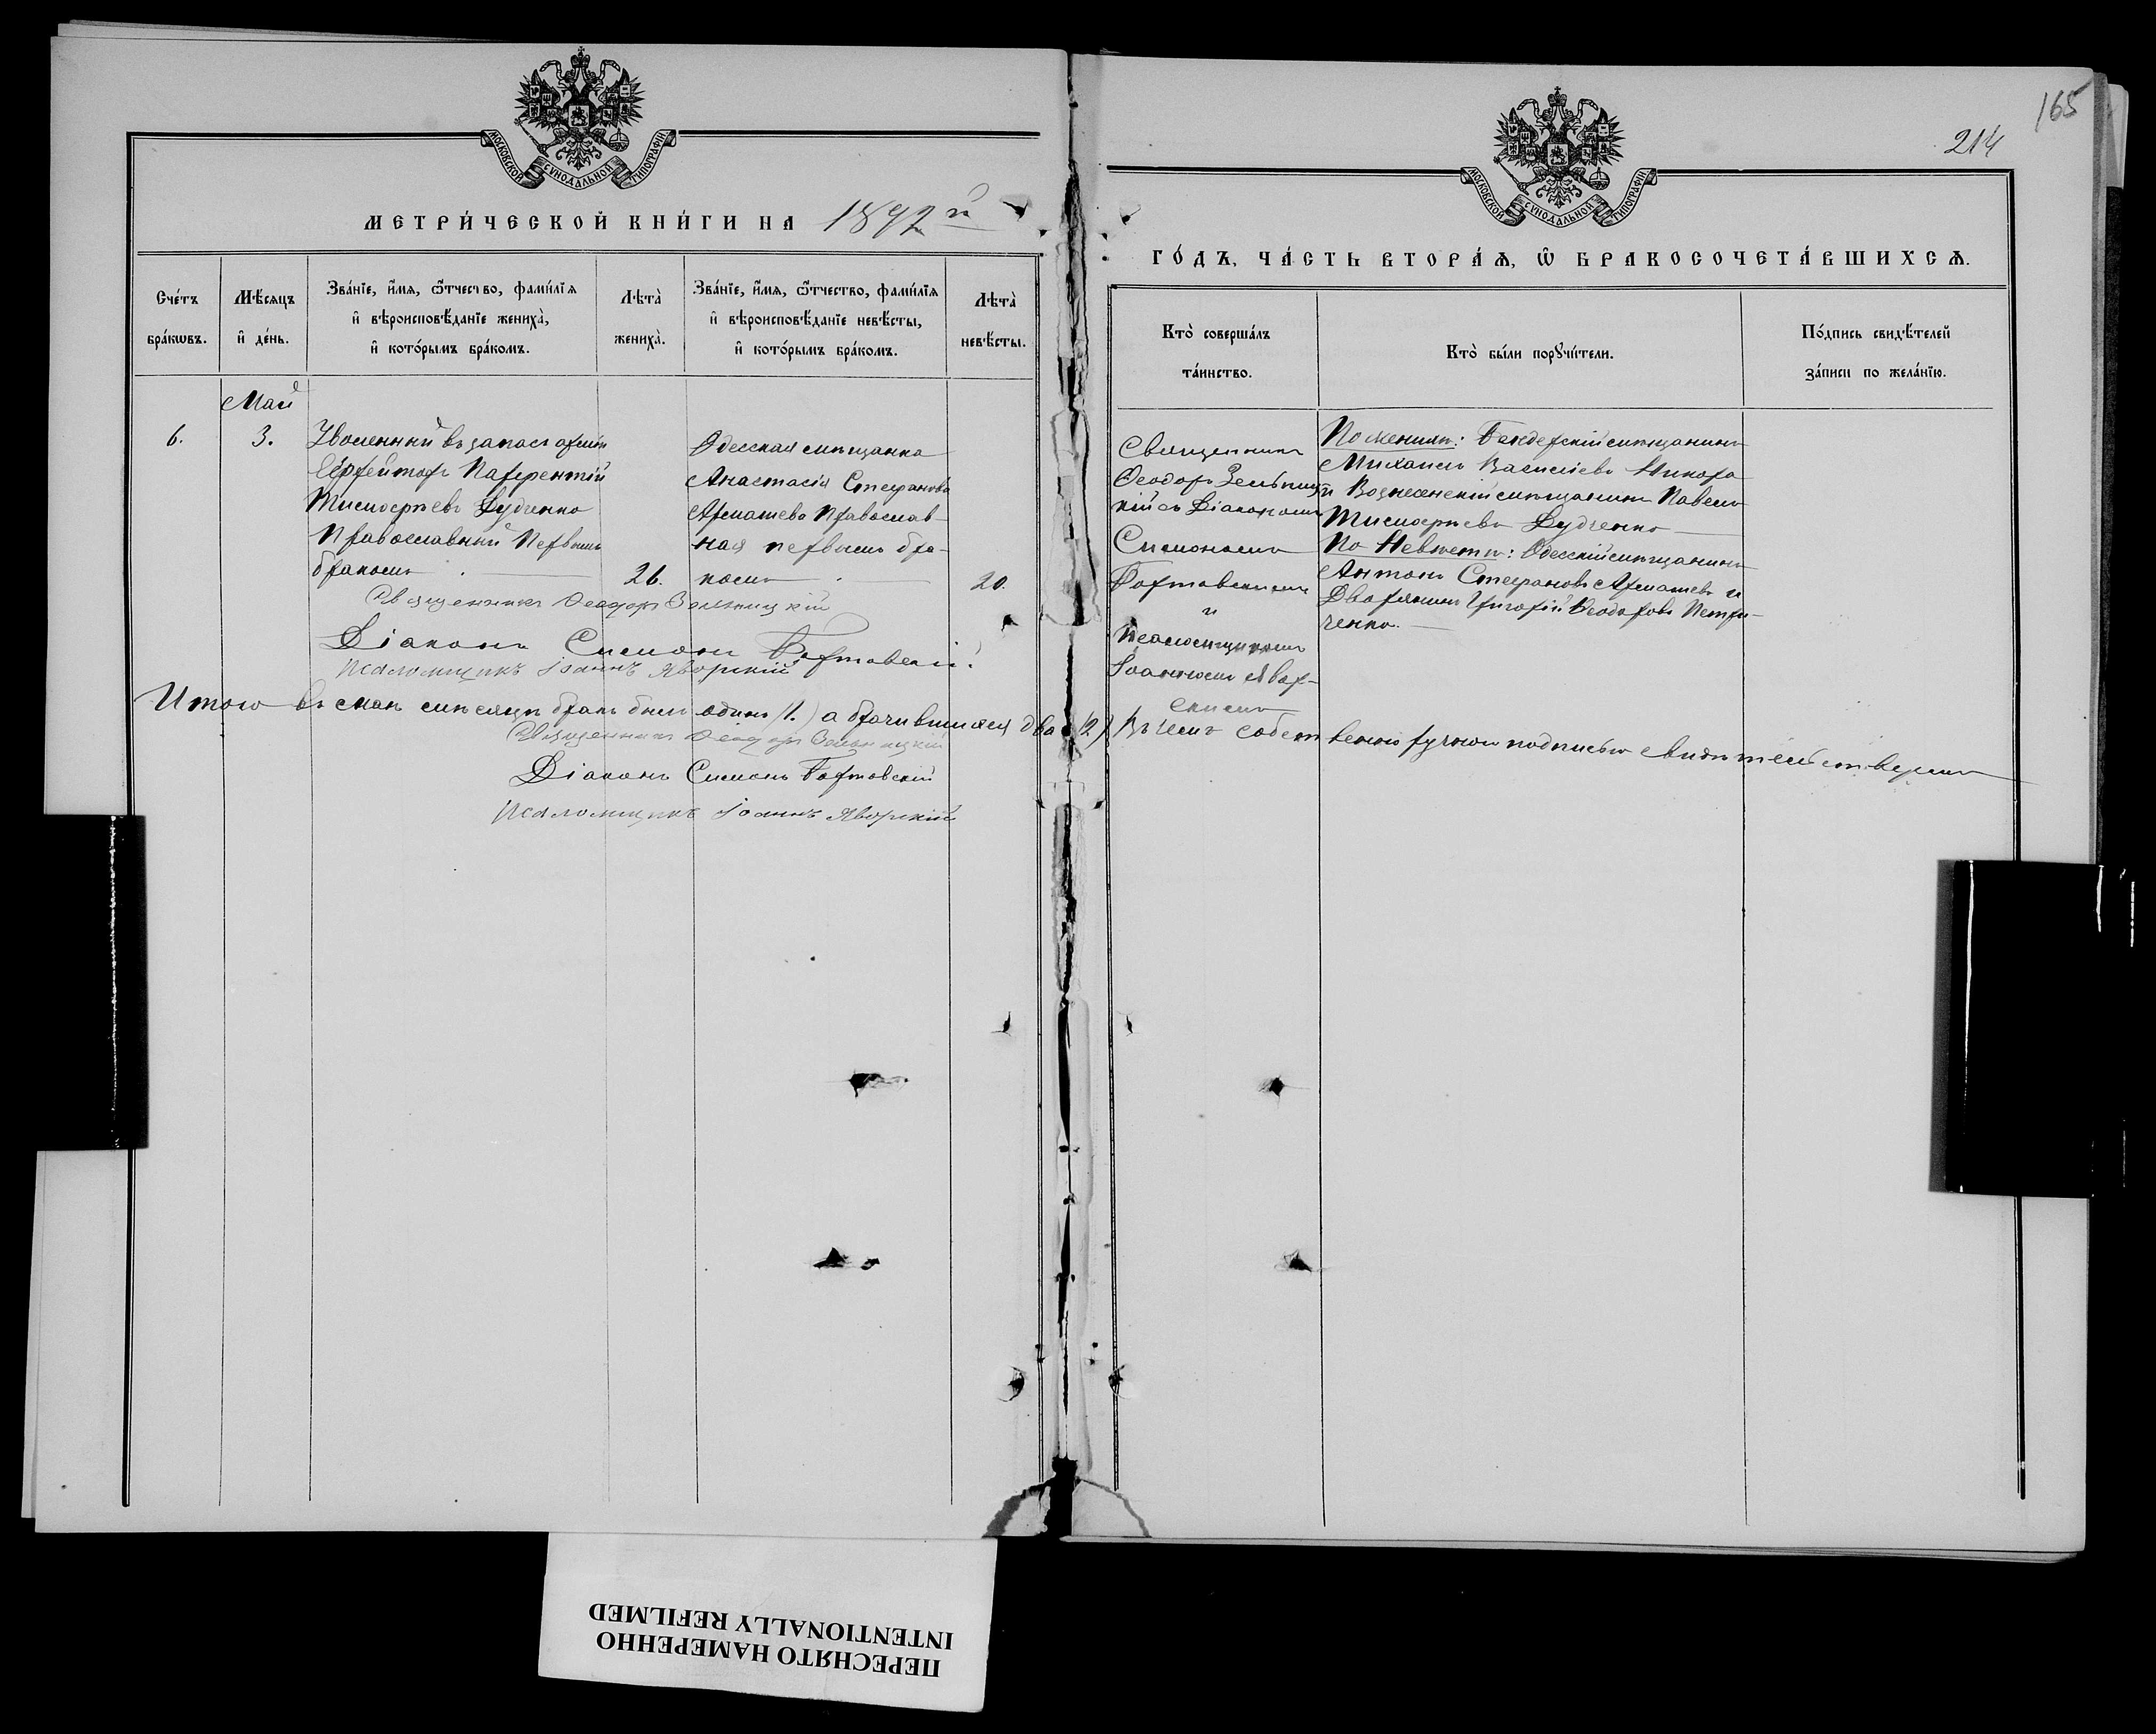 165
214
МОСКОВСКОЙ СУНОДАЛЬНОЙ ТИПОГРАФІИ
МОСКОВСКОЙ СУНОДАЛЬНОЙ ТИПОГРАФІИ
МЕТРИ́ЧЕСКОЙ КНИ́ГИ НА 1892й
ГО́ДЪ, ЧА́СТЬ ВТОРА́Ѧ, Ѽ БРАКОСОЧЕТА́ВШИХСѦ.
Сче́тъ
бра́кѡвъ.
Мѣ́сяцъ
и҆ де́нь.
Зва́нїе, и҆́мя, ѻ҆́тчество, фами́лїя
и҆ вѣроисповѣ́данїе жениха̀,
и҆ кото́рымъ бра́комъ.
Лѣта̀
жениха̀.
Зва́нїе, и҆́мя, ѻ҆́тчество, фами́лїя
и҆ вѣроисповѣ́данїе невѣ́сты,
и҆ кото́рымъ бра́комъ.
Лѣта̀
невѣ́сты.
Кто̀ соверша́лъ
та́инство.
Кто̀ бы́ли порꙋчи́тели.
По́дпись свидѣ́телей
за́писи по жела́нїю.
Май
6.
3.
Уволенный въ запасъ арміи
Ефрейторъ Паѳрентій
Тимоѳеевъ Дудченко
Православный Первымъ
бракомъ
26.
Одесская мѣщанка
Анастасія Стефанова
Армашева Православ-
ная первымъ бра-
комъ
20.
Священникъ
Ѳеодоръ Зельниц-
кій съ Діакономъ
Симономъ
Бортовскимъ
и
Псаломщикомъ
Іоанномъ Явор-
скимъ
По жениху: Бендерскій мѣщанинъ
Михаилъ Василіевъ
и Вознесенскій мѣщанинъ Павелъ
Тимоѳеевъ Дудченко
По Невѣстѣ: Одесскій мѣщанинъ
Антонъ Стефановъ Армашевъ и
Дворянинъ Григорій Ѳеодоровъ Петри-
ченко.
Священникъ Ѳеодоръ Зельницкій
Діаконъ Симонъ Бортовскій
Псаломщикъ Іоаннъ Яворскій
Итого въ маѣ мѣсяцѣ бракъ былъ одинъ (1.) а брачившихся два (2) Въ чемъ собственноручною подписью свидѣтельствуемъ
Священникъ Ѳеодоръ Зельницкій
Діаконъ Симонъ Бортовскій
Псаломщикъ Іоаннъ Яворскій
ПЕРЕСНЯТО НАМЕРЕННО
INTENTIONALLY REFILMED